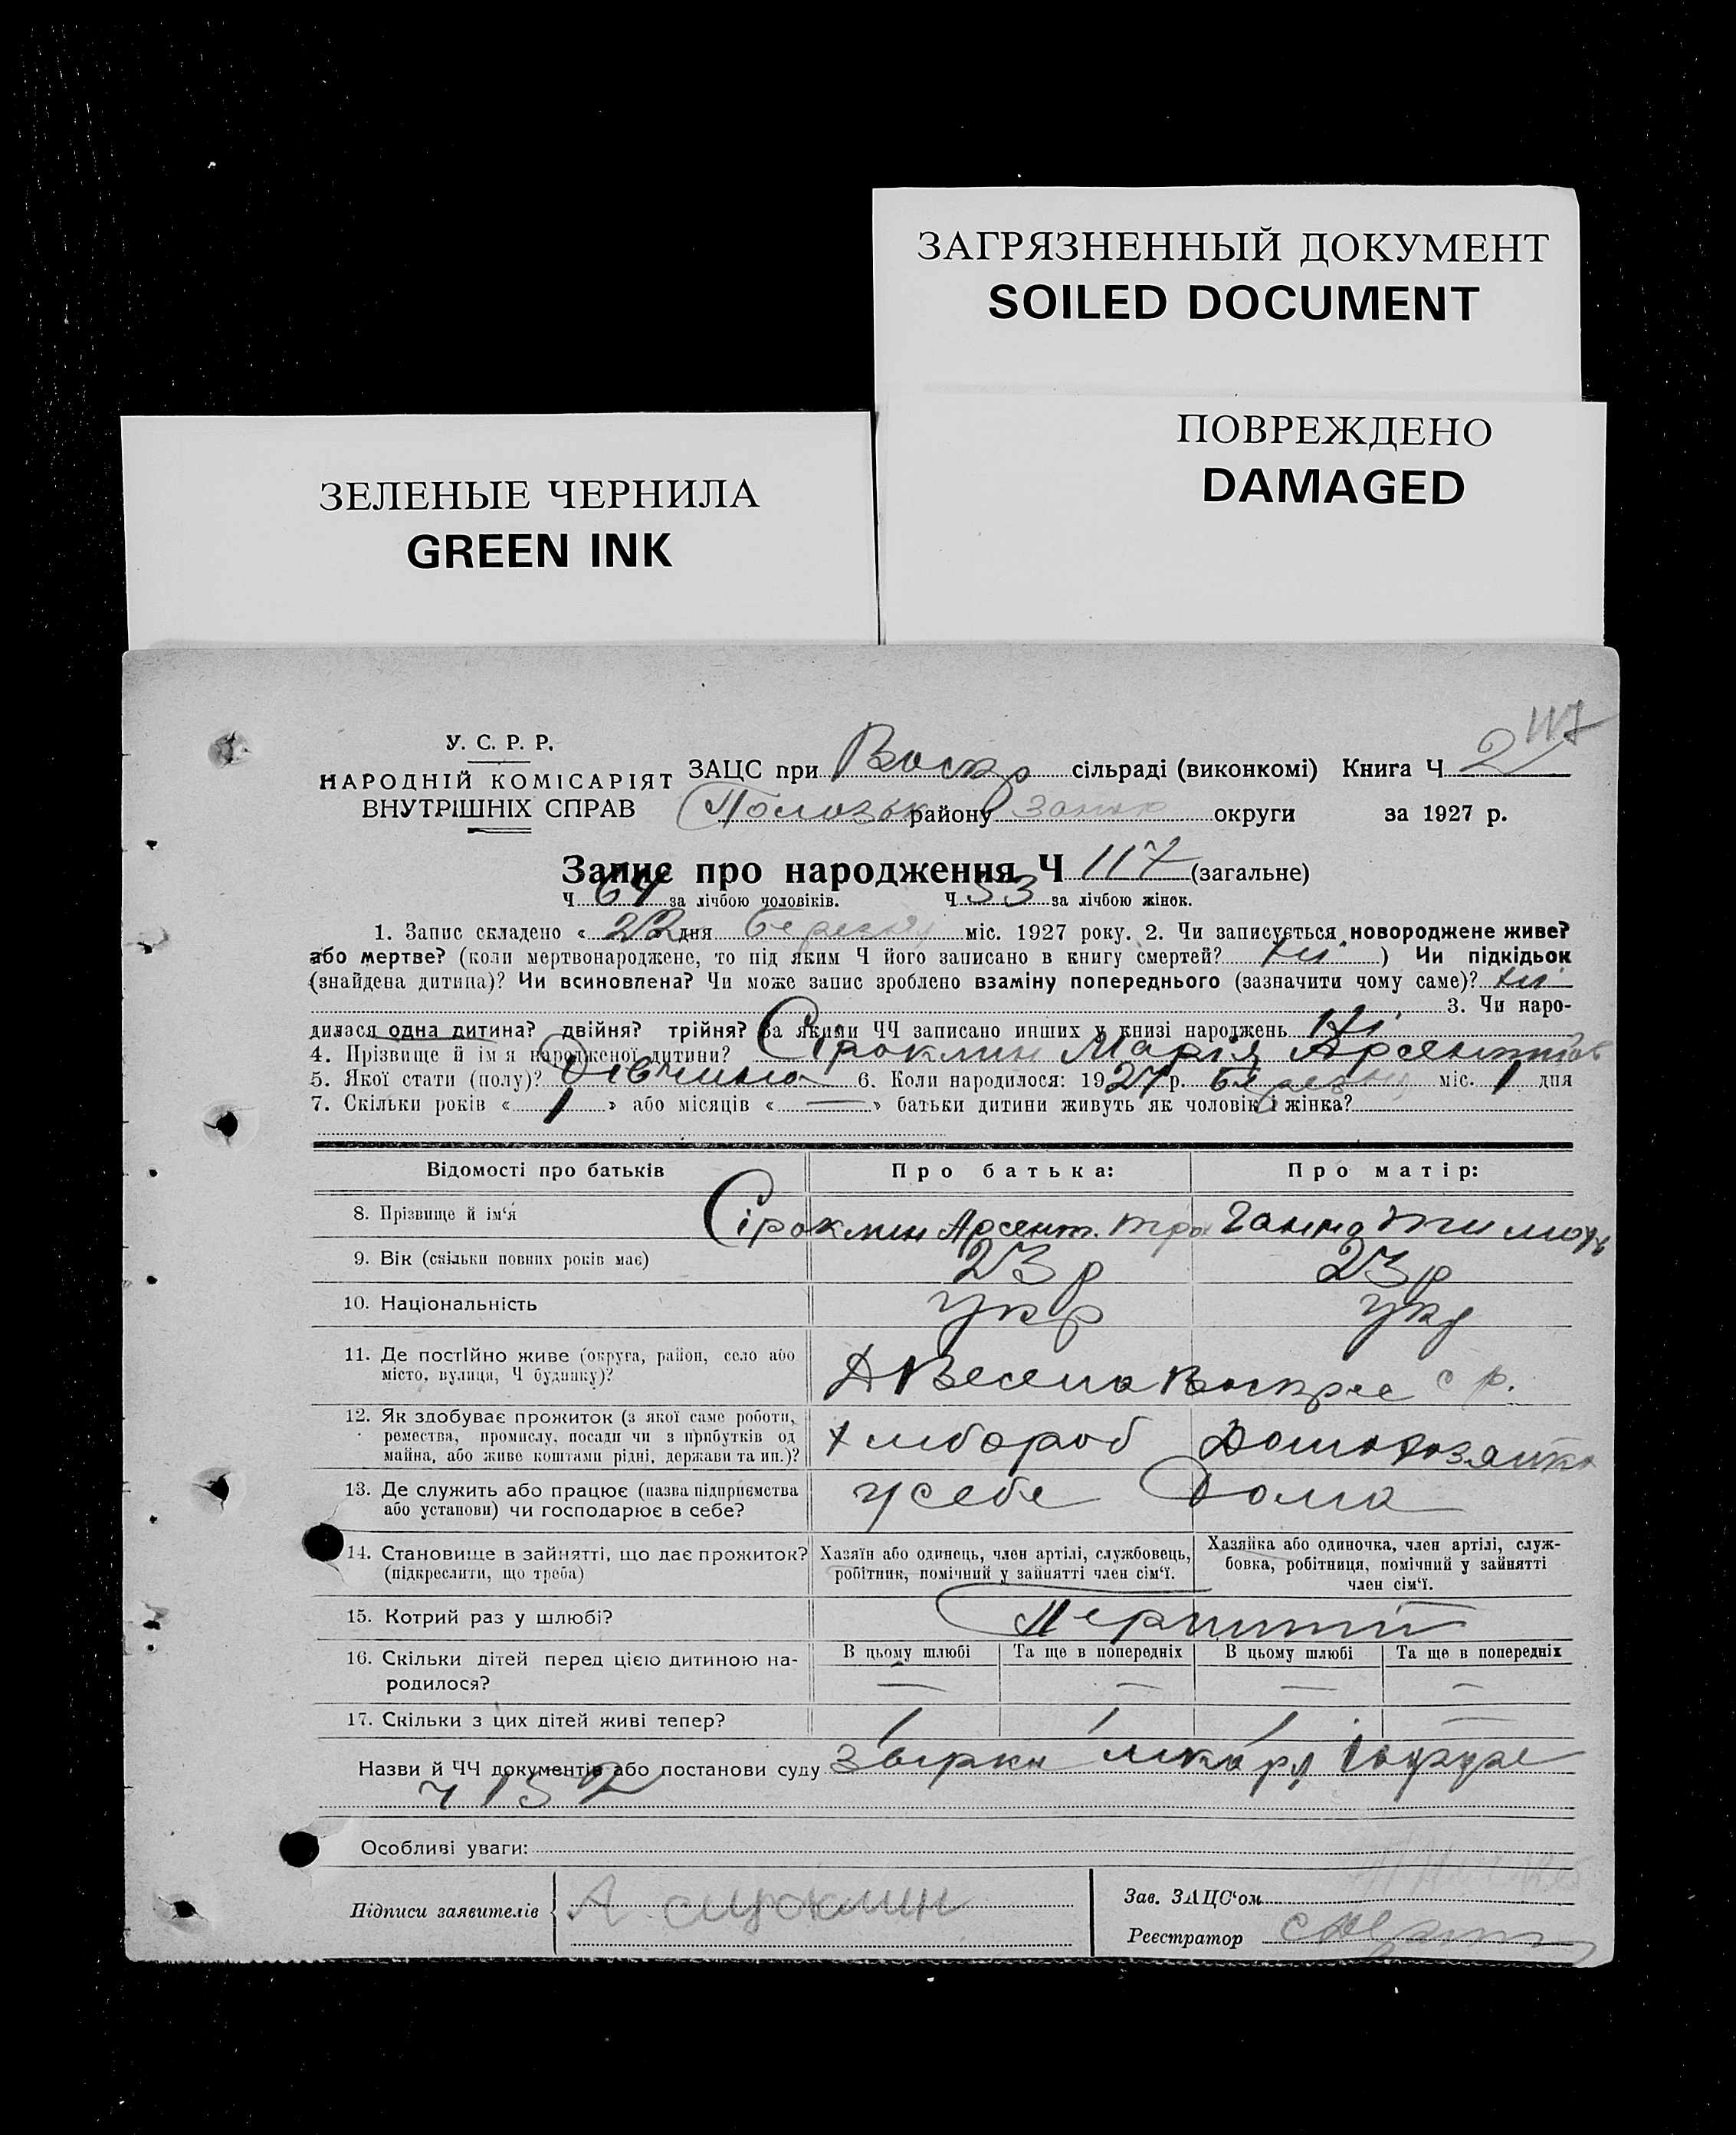 ЗАГРЯЗНЕННЫЙ ДОКУМЕНТ
SOILED DOCUMENT
ПОВРЕЖДЕНО
DAMAGED
ЗЕЛЕНЫЕ ЧЕРНИЛА
GREEN INK
117
У. С. Р. Р.
НАРОДНІЙ КОМІСАРІЯТ
ВНУТРІШНІХ СПРАВ
ЗАЦС при Воскр сільраді (виконкомі) Книга Ч 2
району округи за 1927 р.
Запис про народження Ч 117 (загальне)
Ч 64 за лічбою чоловіків. Ч 53 за лічбою жінок.
1. Запис складено « 22 дня березня міс. 1927 року. 2. Чи записується новороджене живе?
або мертве? (коли мертвонароджене, то під яким Ч його записано в книгу смертей? ні ) Чи підкідьок
(знайдена дитина)? Чи всиновлена? Чи може запис зроблено взаміну попереднього (зазначити чому саме)? ні
3. Чи наро-
дилася одна дитина? двійня? трійня? За якими ЧЧ записано инших у книзі народжень ні
4. Прізвище й ім'я народженої дитини? Сіроклин Марія
5. Якої стати (полу)? Дівчина 6. Коли народилося: 1927 р. березня міс. 1 дня
7. Скільки років « 1 » або місяців « — » батьки дитини живуть як чоловік і жінка?
Відомості про батьків Про батька: Про матір:
8. Прізвище й ім'я Сіроклин Арсент. Ганна
9. Вік (скільки повних років має) 23 р 23 р
10. Національність укр укр
11. Де постійно живе (округа, район, село або
місто, вулиця, Ч будинку)? с р.
12. Як здобуває прожиток (з якої саме роботи,
ремества, промислу, посади чи з прибутків од
майна, або живе коштами рідні, держави та ин.)? Хлібороб Домохозяйка
13. Де служить або працює (назва підприємства
або установи) чи господарює в себе? у себе Дома
14. Становище в зайнятті, що дає прожиток?
(підкреслити, що треба)
Хазяїн або одинець, член артілі, службовець,
робітник, помічний у зайнятті член сім'ї.
Хазяйка або одиночка, член артілі, служ-
бовка, робітниця, помічний у зайнятті
член сім'ї.
15. Котрий раз у шлюбі? Перший
16. Скільки дітей перед цією дитиною на-
родилося?
В цьому шлюбі Та ще в попередніх В цьому шлюбі Та ще в попередніх
— — — —
17. Скільки з цих дітей живі тепер?
Назви й ЧЧ документів або постанови суду
ч 152
Особливі уваги:
Підписи заявителів А. сироклин
Зав. ЗАЦС'ом
Реєстратор